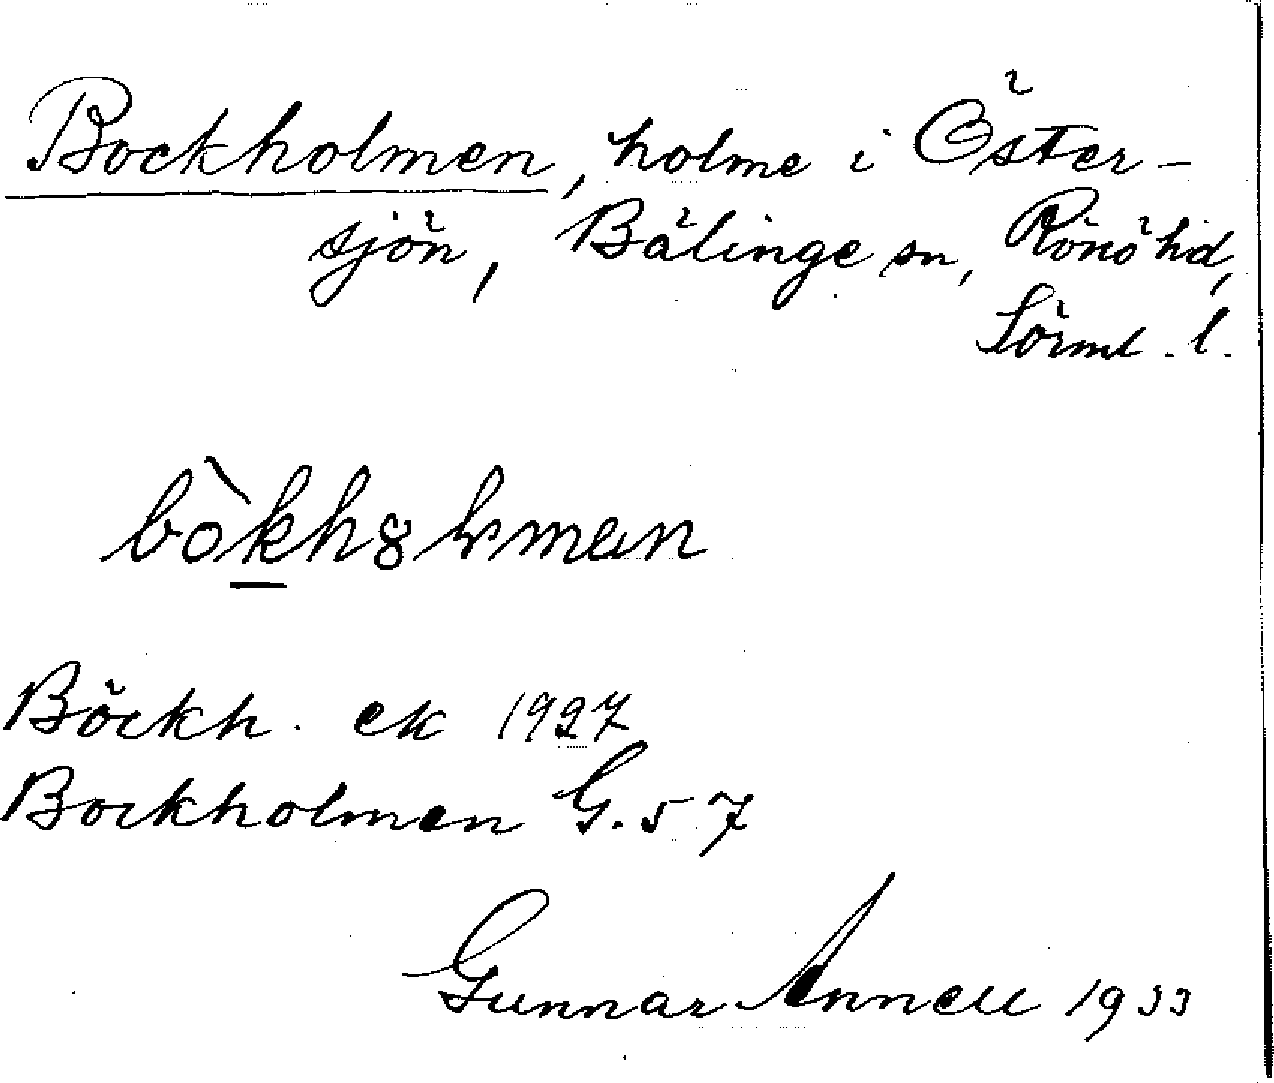 Bockholmen, holme i Öster-
sjön, Bälinge sn, Rönö hd,
Sörml. l.
bòkhꝏlmɘn
Böckh. ek 1927
Bockholmen G. 57
Gunnar Annell 1933